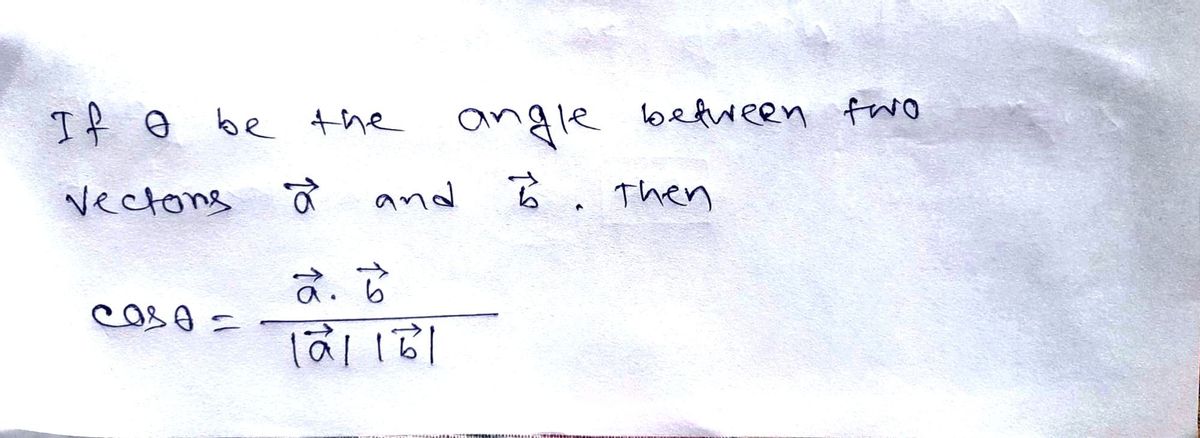 If θ be the angle between two
vectors a⃗ and b⃗. Then
cosθ = a⃗. b⃗
|a⃗| |b⃗|